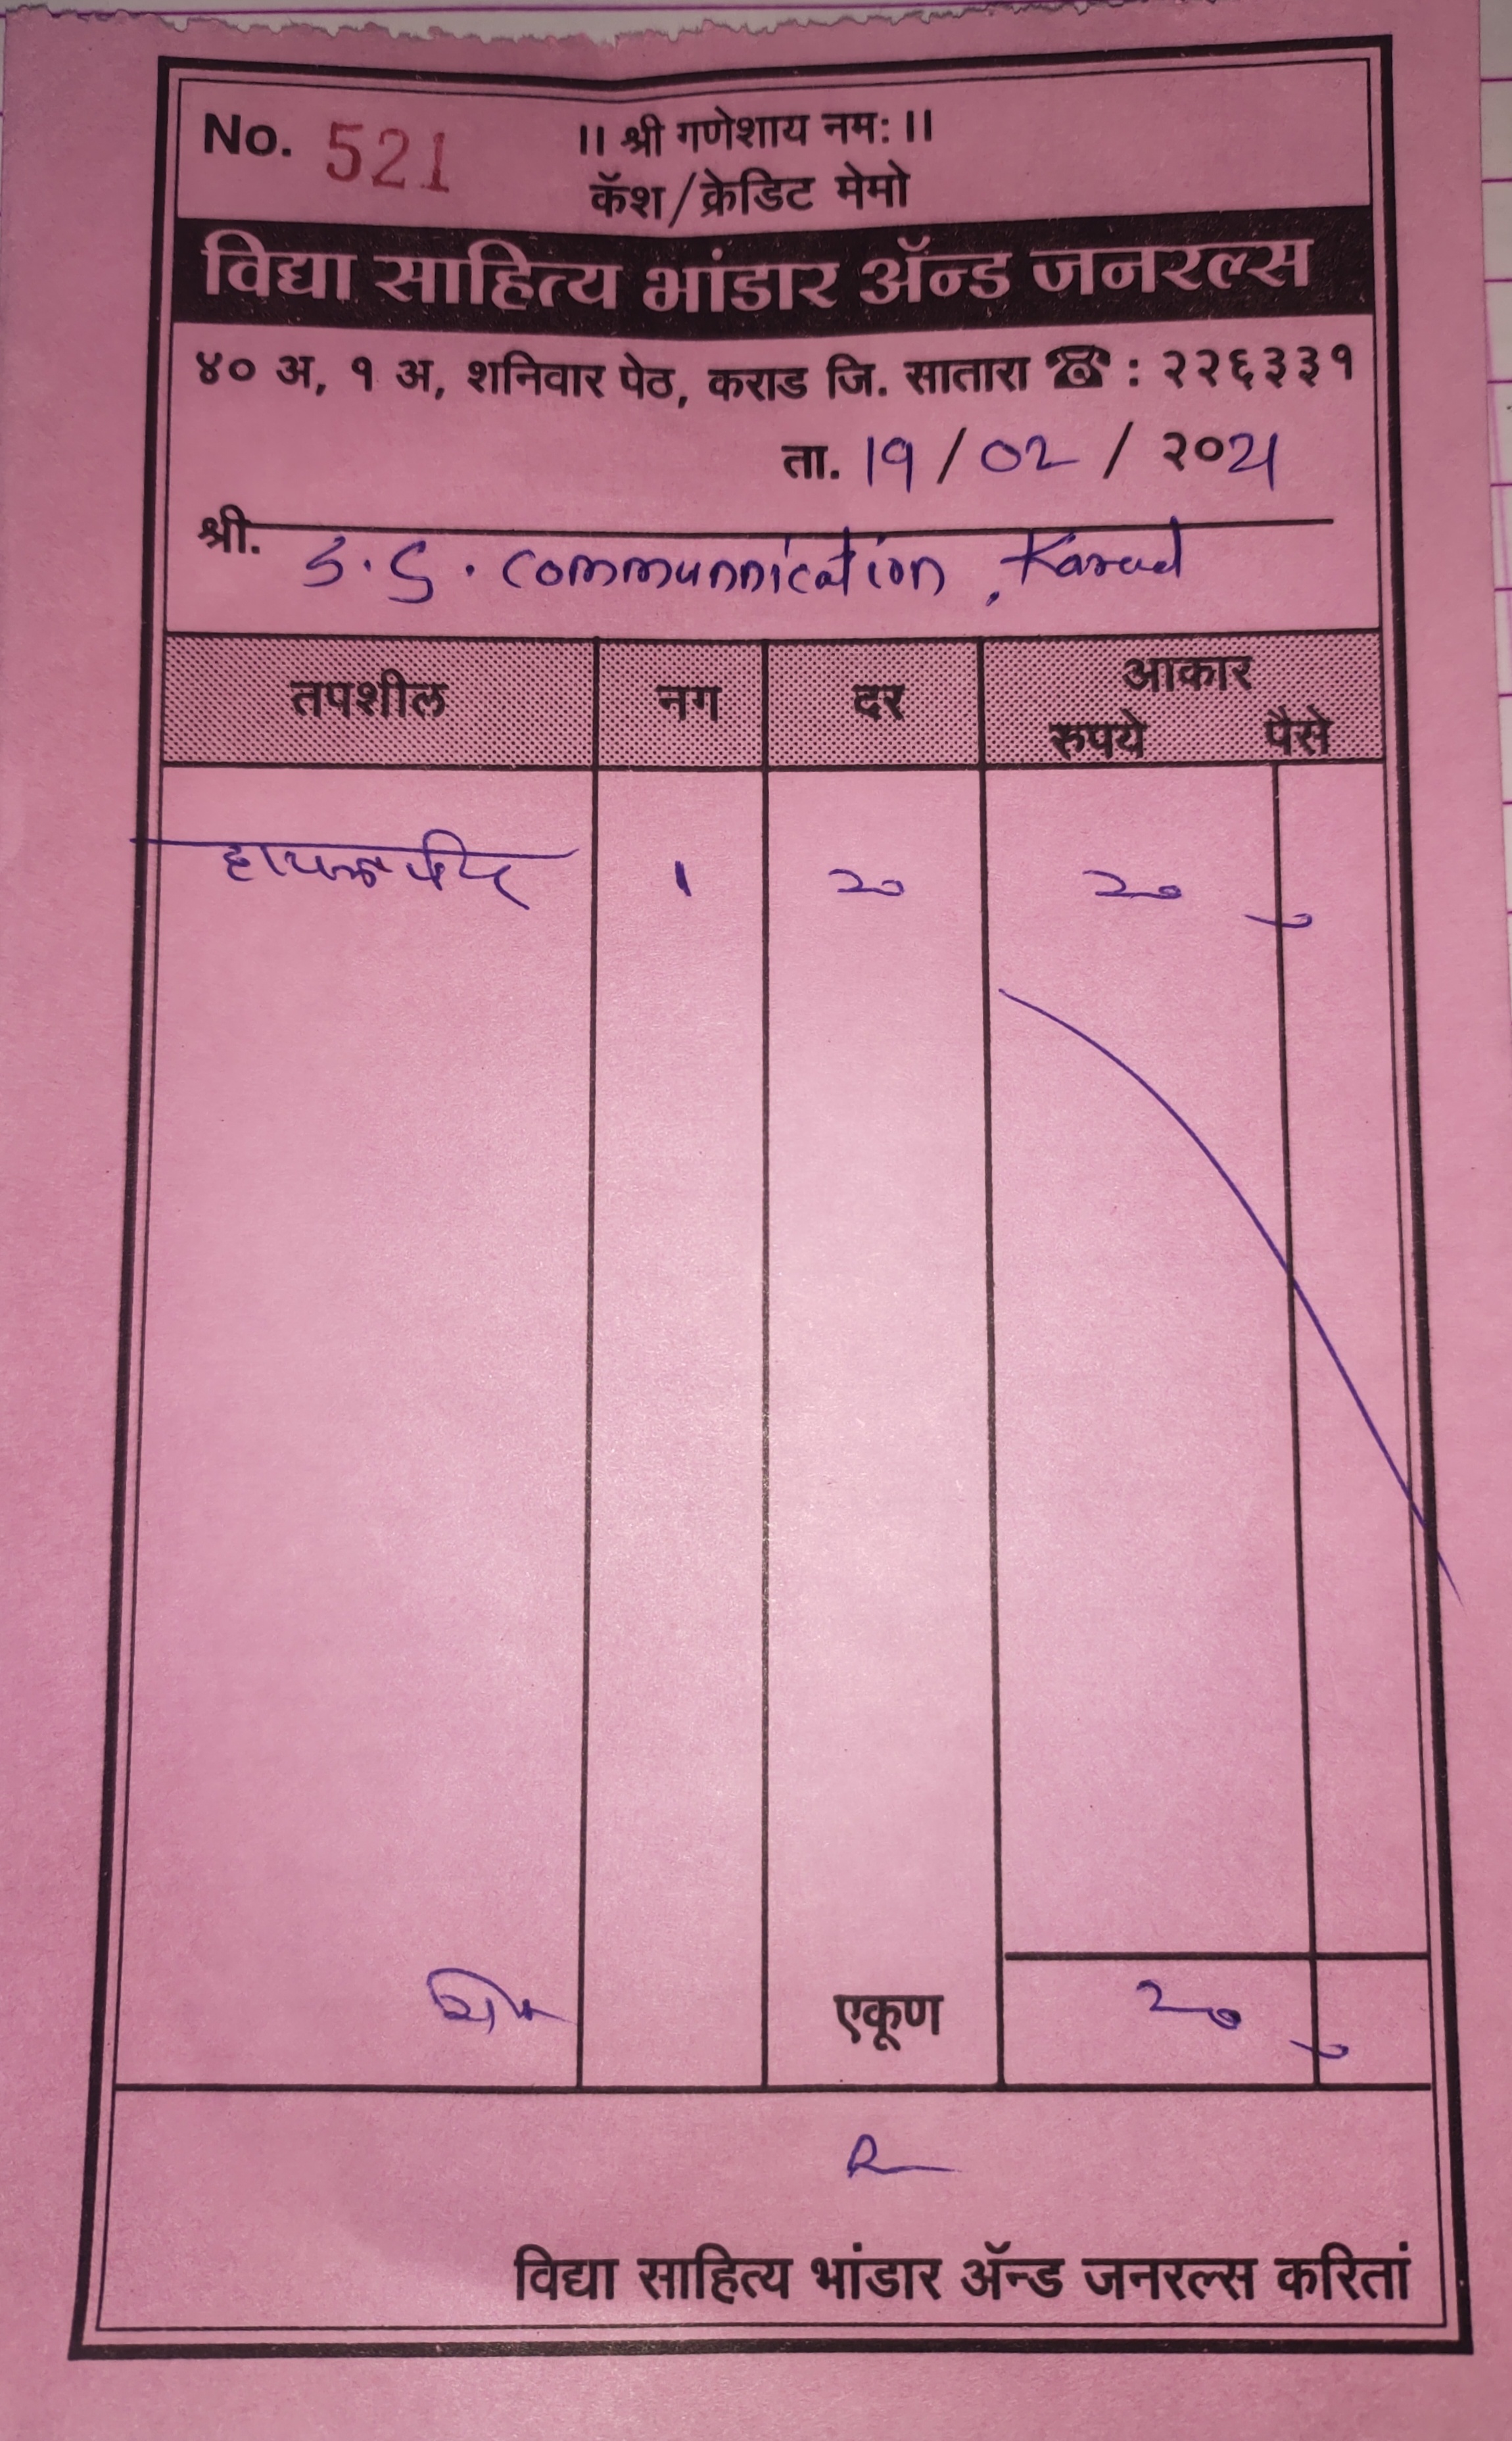 No. 521
।। श्री गणेशाय नमः ।।
कॅश/क्रेडिट मेमो
विद्या साहित्य भांडार ॲन्ड जनरल्स
४० अ, १ अ, शनिवार पेठ, कराड जि. सातारा ☎ : २२६३३१
ता. 19 / 02 / २०21
श्री. S.S. communnication, Karad
तपशील नग दर आकार
रुपये पैसे
1 20 20
एकूण 20
विद्या साहित्य भांडार ॲन्ड जनरल्स करितां